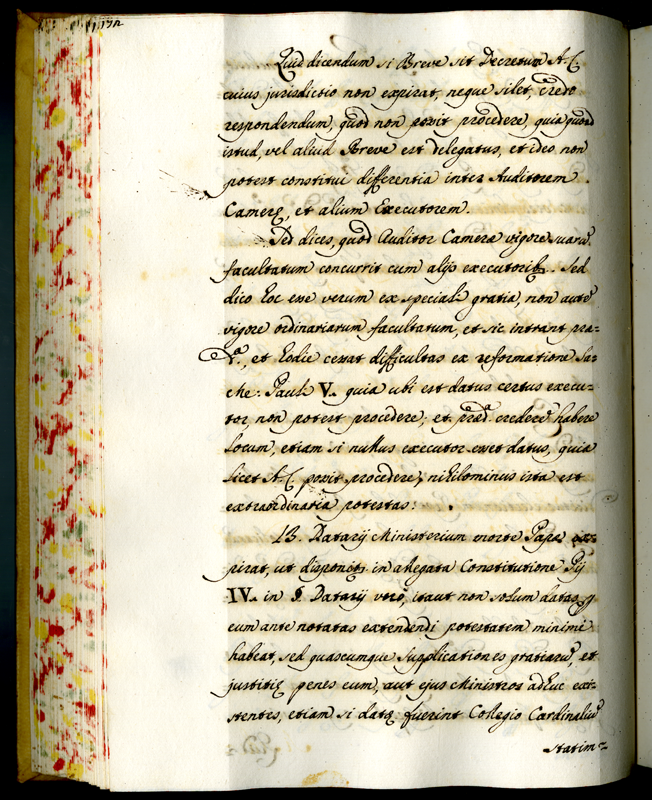 172
Quid dicendum si Breve sit Decretum A. C.
cuius jurisdictio non expirat, neque silet, credo
respondendum, quod non possit procedere, quia quod
istud, vel aliud Breve est delegatus, et ideo non
potest constitui differentia inter Auditorem
Cameræ, et alium Executorem.
Sed dices, quod Auditor Cameræ vigore suarũ
facultatum concurrit cum alijs executorib. Sed
dico hoc esse verum ex speciali gratia, non autẽ
vigore ordinariarum facultatum, et sic intrant præ-
et hodie cessat difficultas ex reformatione Sa-
che: Pauli V. quia ubi est datus certus execu-
tor, non potest procedere, et præd. crederẽ habere
locum, etiam si nullus executor esset datus, quia
licet A. C. possit procedere, nihilominus ista est
extraordinaria potestas:
13. Datarij Ministerium morte Papæ ex-
pirat, ut disponit. in allegata Constitutione Pij
IV. in §. Datarij vero, itaut non solum datas p
eum ante notatas extendendi potestatem minimè
habeat, sed quascumque supplicationes gratiarũ, et
justitiæ penes eum, aut ejus Ministros adhuc exi-
stentes, etiam si datæ fuerint Collegio Cardinaliũ
statim